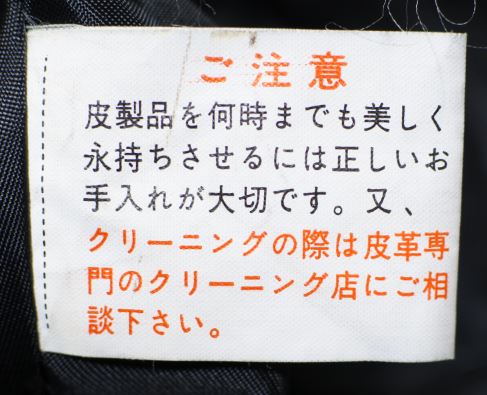 ご注意
皮製品を何時までも美しく
永持ちさせるには正しいお
手入れが大切です。又、
クリーニングの際は皮革専
門のクリーニング店にご相
談下さい。